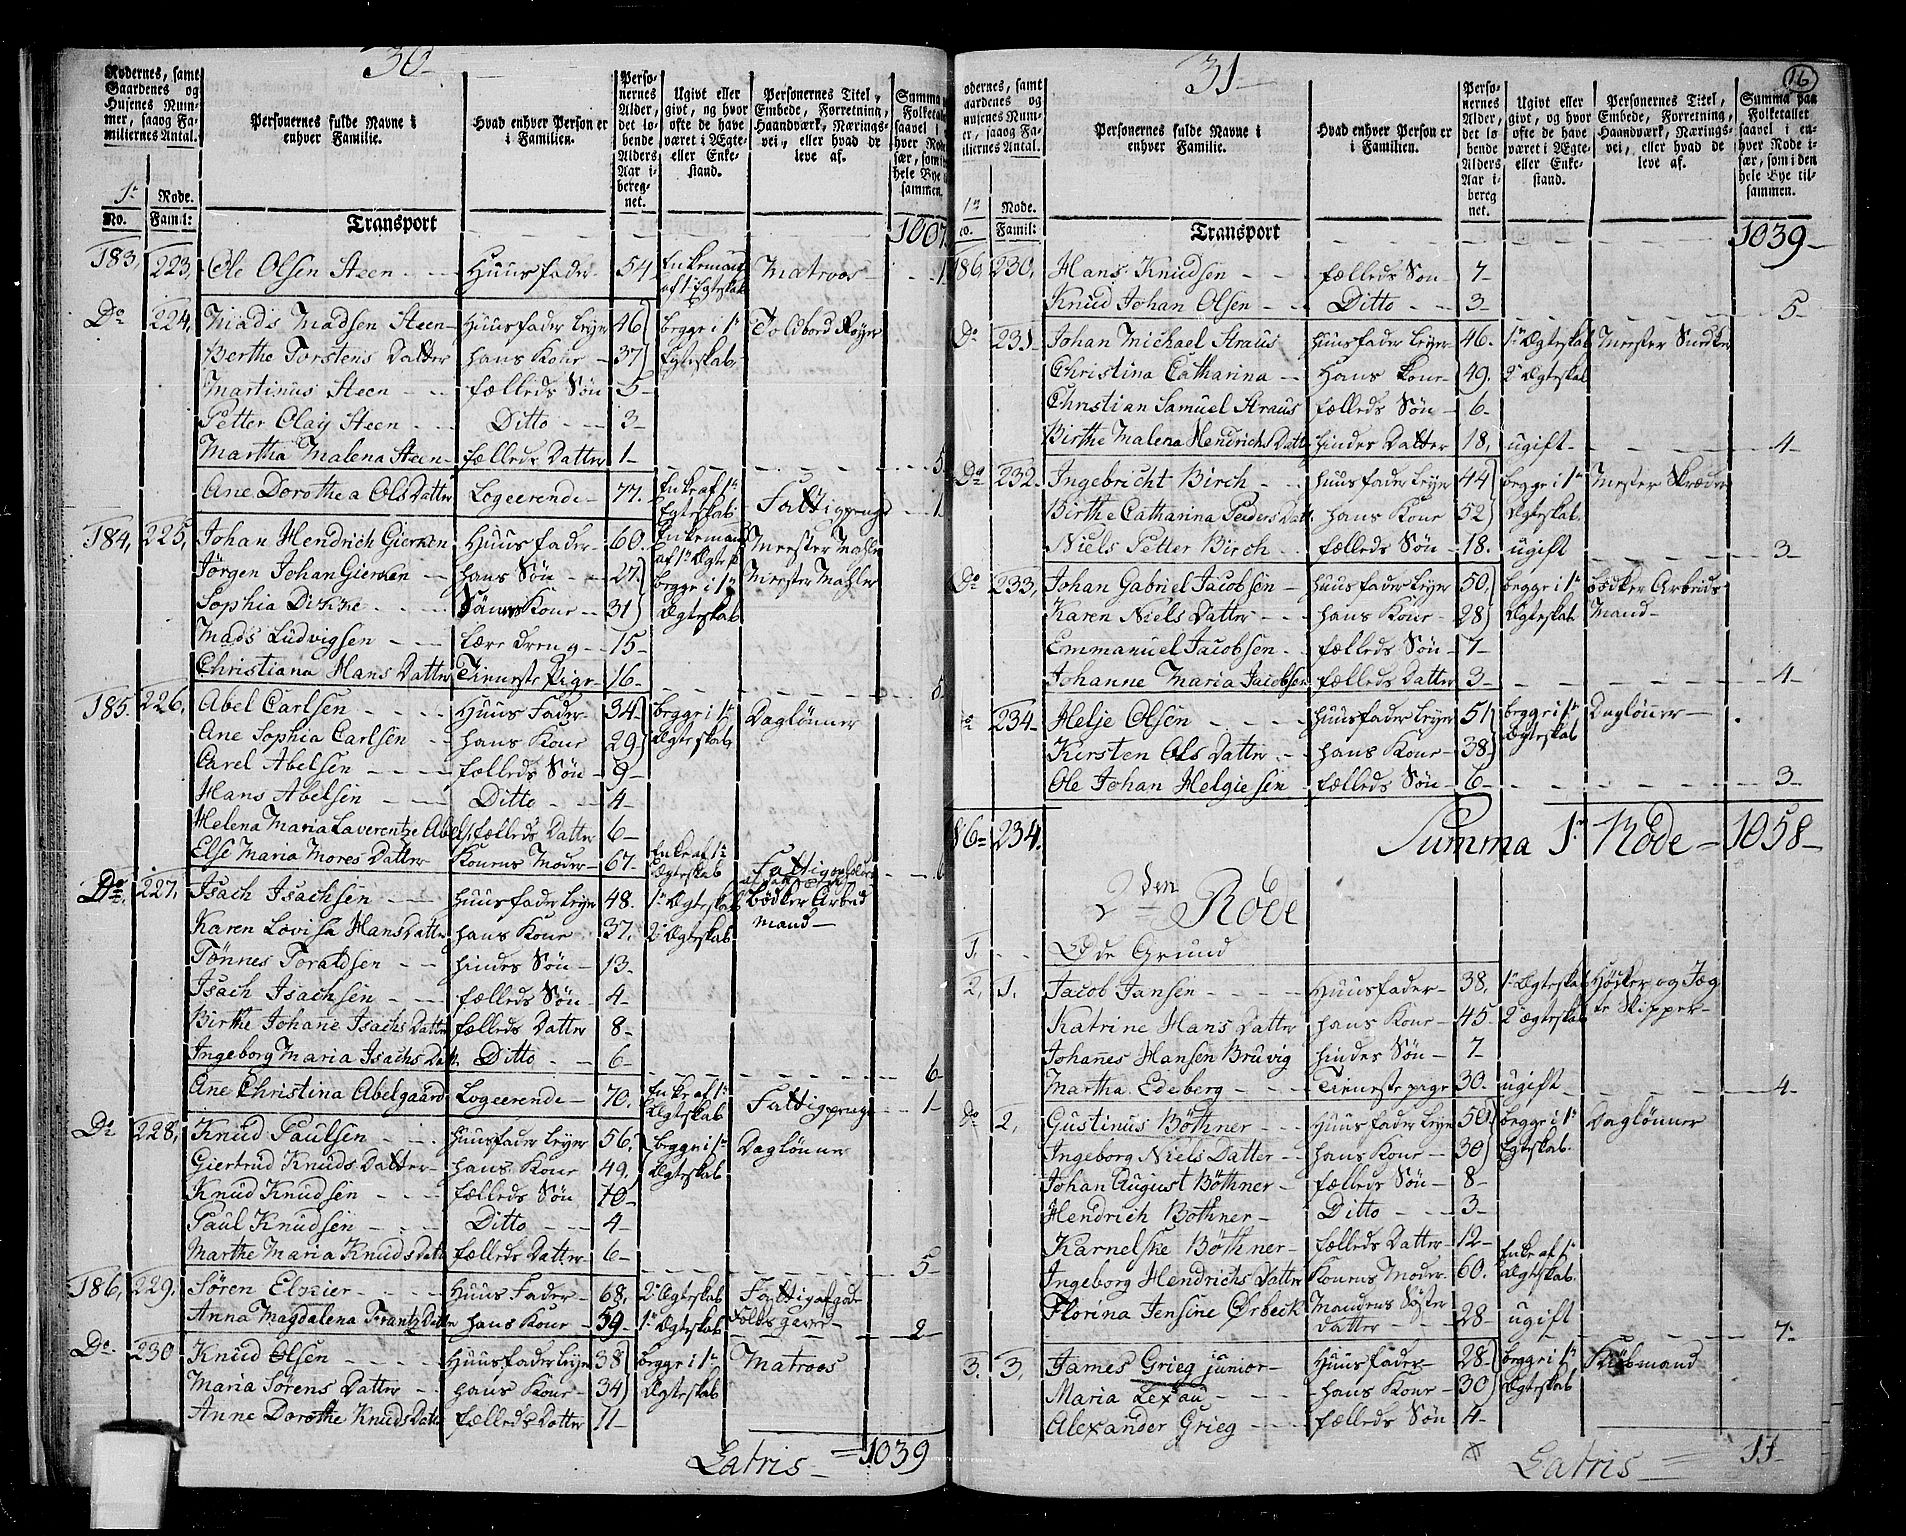 30
Rodernes, samt Gaardenes og Husenes Nummer, saaog Familiernes Antal.
Personernes fulde Navne i enhver Familie.
Hvad enhver Person er i Familien.
Personernes Alder, det løbende Alders Aar iberegnet.
Ugivt eller givt, og hvor ofte de have været i Ægte- eller Enkestand.
Personernes Titel, Embede, Forretning, Haandværk, Næringsvei, eller hvad de leve af.
Summa Folketallet saavel i hver Rode især, som i den hele Bye tilsammen.
1e Rode.
No. Famil:
Transport 1007
183, 223, Ole Olsen Steen Huusfader 54 Enkemand af 1 Egteskab Matroos 1
Do 224, Mads Madsen Steen Huusfader Leyer 46 begge i 1e Egteskab Toldbord Royer
Berthe Torstens Datter hans Kone 37
Martinus Steen fælleds Søn 5
Petter Olay Steen Ditto 3
Martha Malena Steen fælleds Datter 1 5
Ane Dorothea Ols Datter Logeerende 77. Enke af 1e Egteskab Fattigpenge 1
184, 225, Johan Hendrich Gierken Huusfader 60. Enkemand af 1e Ægtes Meester Mahler
Jörgen Johan Gierken hans Søn 27. begge i 1e Ægteskab Meester Mahler
Sophia Dikke Sønens Kone 31
Mads Ludvigsen Lære dreng 15
Christiana Hans Datter Tieneste Pige 16 5
185. 226, Abel Carlsen Huus Fader 34 begge i 1e Ægteskab Daglönner
Ane Sophia Carlsen hans Kone 29
Carel Abelsen fælleds Søn 9
Hans Abelsen Ditto 4
Helena Maria Laverentze Abels fælleds Datter 6
Else Maria Mores Datter Konens Moder 67 Enke af 1e Ægteskab 6
Do 227, Isach Isachsen huusfader Leyer 48. 1e Ægteskab bödker Arbeids mand
Karen Lovisa Hans Datter hans Kone 37. 2 Ægteskab
Tönnes Toraldsen hindes Søn 13.
Isach Isachsen fælleds Søn 4
Birthe Johane Isachs Datter fælleds Datter 8
Ingeborg Maria Isachs Datt. Ditto 6 6
Ane Christina Abelgaard Logeerende 70. Enke af 1e Ægteskab Fattigpenge 1
Do 228, Knud Paulsen huusfader Leyer 56. begge i 1e Ægteskab Daglönner
Giertrud Knuds Datter hans Kone 49.
Knud Knudsen fælleds Søn 10
Paul Knudsen Ditto 4
Marthe Maria Knuds Datter fælleds Datter 6 5
186, 229. Sören Elgier Huus Fader 68, 2 Ægteskab Fattig af gode Folks gaver
Anna Magdalena Frantz Datter hans Kone 59 1e Ægteskab 2
Do 230 Knud Olsen Huusfader Leyer 38 begge i 1e Ægteskab Matroos
Maria Sörens Datter hans Kone 34
Anne Dorothe Knuds Datter fælleds Datter 11
Latris 1039
31
16
odernes, samt aardenes og usenes Numer, saaog Familiernes Antal.
Personernes fulde Navne i enhver Familie.
Hvad enhver Person er i Familien.
Personernes Alder, det løbende Alders Aar iberegnet.
Ugivt eller givt, og hvor ofte de have været i Ægte- eller Enkestand.
Personernes Titel, Embede, Forretning, Haandværk, Næringsvei, eller hvad de leve af.
Summa paa Folketallet saavel i enhver Rode især, som i den hele Bye tilsammen.
1e Rode.
o. Famil:
Transport 1039
186 230, Hans Knudsen fælleds Søn 7
Knud Johan Olsen Ditto 3 5
Do 231. Johan Michael Straus huusfader Leyer 46. 1e Ægteskab Meester Snedker
Christina Catharina Hans Kone 49. 2 Ægteskab
Christian Samuel Straus fælleds Søn 6
Birthe Malena Hendrichs Datter hindes Datter 18, ugift 4
Do 232. Ingebricht Birch huusfader Leyer 44 begge i 1e Ægteskab Mester Skræder
Birthe Catharina Peders Datt. hans Kone 52
Niels Petter Birch fælleds Søn 18. ugift 3
Do 233, Johan Gabriel Jacobsen huusfader Leyer 50, begge i 1e Ægteskab bödker Arbeids Mand
Karen Niels Datter hans Kone 28
Emmanuel Jacobsen fælleds Søn 7
Johanne Maria Jacobsen fælleds Datter 3 4
Do 234 Helje Olsen huusfader Leyer 51 begge i 1e Ægteskab Daglönner
Kersten Ols Datter hans Kone 38
Ole Johan Helgiesen fælleds Søn 6 3
86 234. Summa 1e Rode 1058
2den Rode
1. Øde Grund
2, 1. Jacob Jansen Huusfader 38, 1e Ægteskab Höcker og Jægte Skipper
Katrine Hans Datter hans Kone 45 2 Ægteskab
Johanes Hansen Bruvig hindes Søn 7
Martha Edeberg Tieneste pige 30. ugift 4
Do 2, Gustinus Böthner Huusfader Leyer 50 begge i 1e Egteskab Daglönner
Ingeborg Niels Datter hans Kone 30
Johan August Böthner fælleds Søn 8
Hendrich Böthner Ditto 3
Karnelske Böthner fælleds Datter 12
Ingeborg Hendrichs Datter Konens Moder 60. Enke af 1e Ægteskab.
Florina Jensine Ørbeck Mandens Söster datter 28 ugift 7
3. 3, James Grieg junior Huusfader 28 begge i 1e Ægteskab Kiöbmand
Maria Lexau hans Kone 30
Alexander Grieg fælleds Søn 4
Latris 11